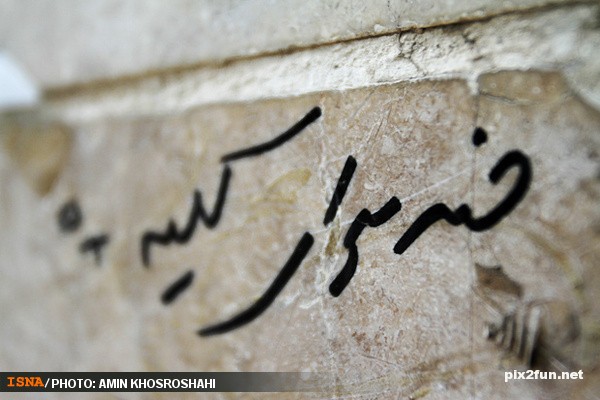 خریدار کلیه O+
ISNA/PHOTO: AMIN KHOSROSHAHI
pix2fun.net